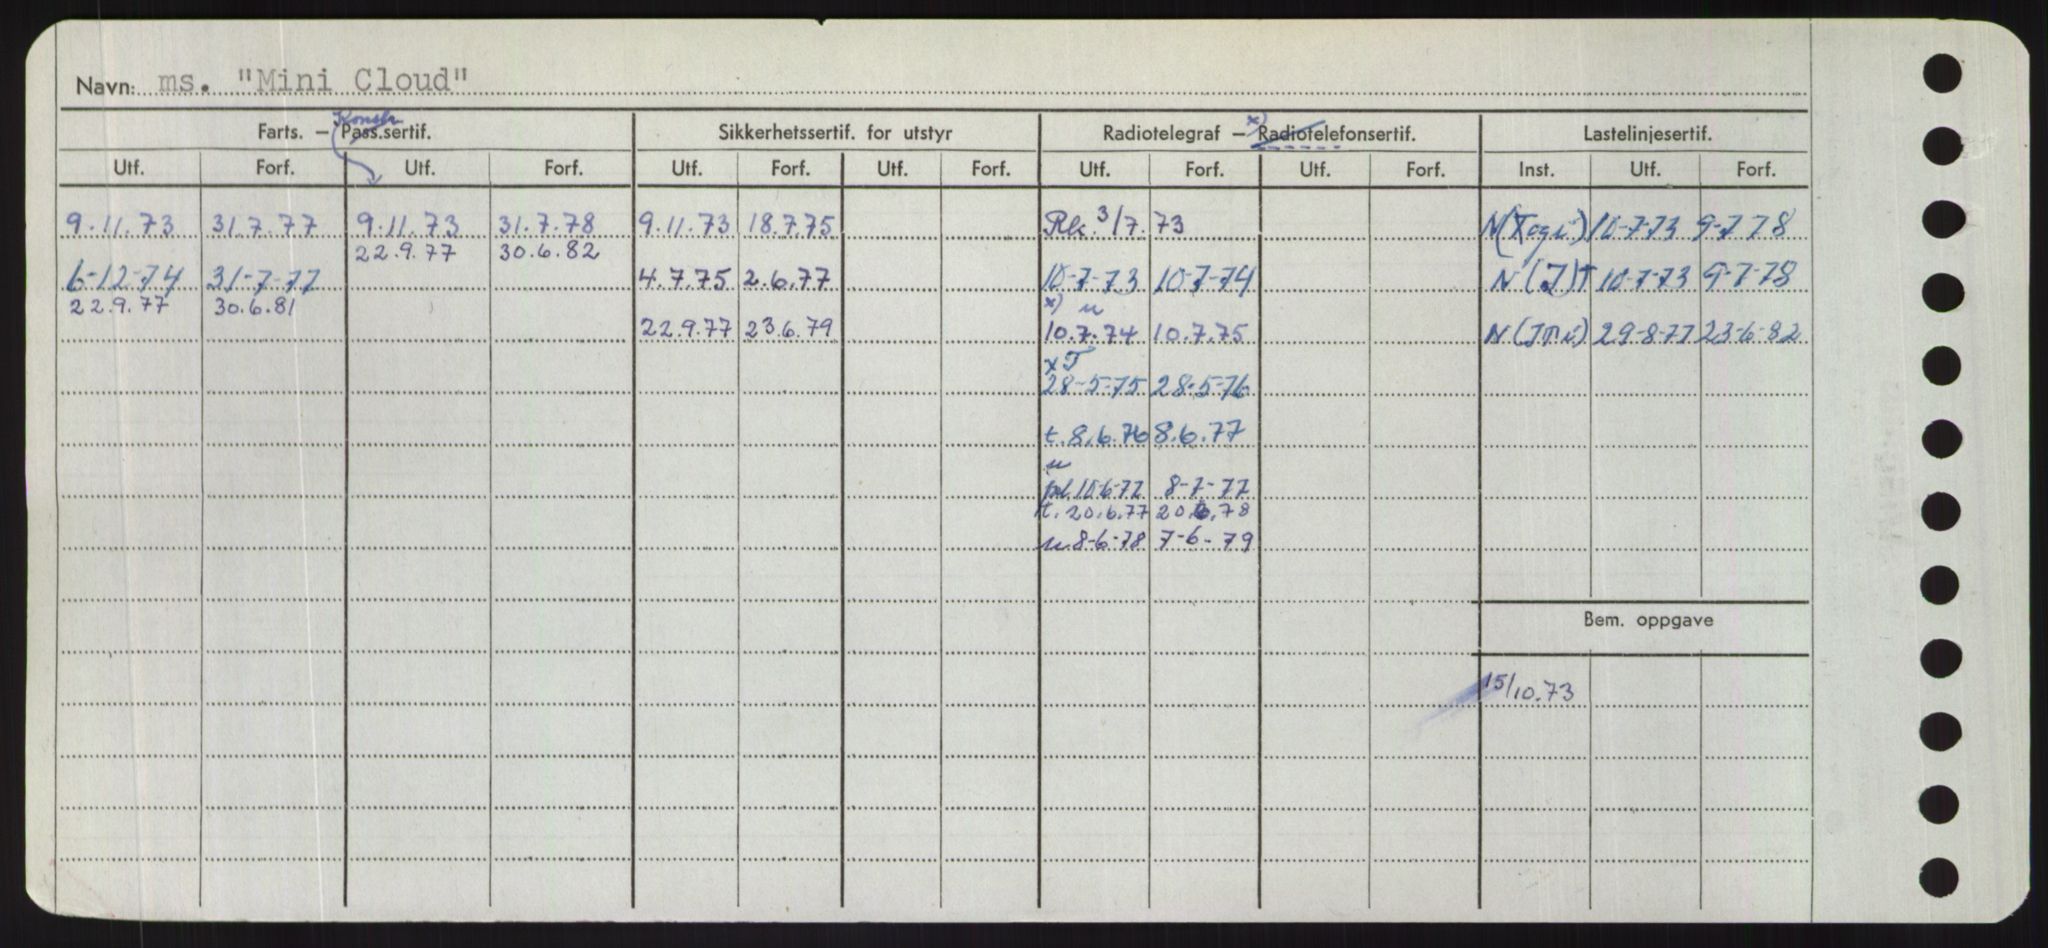 Navn: ms. "Mini Cloud"
Konstr
Farts. — Pass.sertif. Sikkerhetssertif. for utstyr Radiotelegraf — x) Radiotelefonsertif. Lastelinjesertif.
Utf. Forf. Utf. Forf. Utf. Forf. Utf. Forf. Utf. Forf. Utf. Forf. Inst. Utf. Forf.
9.11.73 31.7.77 9.11.73 31.7.78 9.11.73 18.7.75 Rk. 3/7.73 10-7-73 9-7-78
22.9.77 30.6.82
6-12-74 31-7-77 4.7.75 2.6.77 10-7-73 10-7-74 N (I) T 10-7-73 9-7-78
22.9.77 30.6.81 x) u
22.9.77 23.6.79 10.7.74 10.7.75 29-8-77 23-6-82
x T
28-5-75 28-5-76
t. 8.6.76 8.6.77
u
10-6-77 8-7-77
t. 20.6.77 20.6.78
u 8-6-78 7-6-79
Bem. oppgave
15/10.73